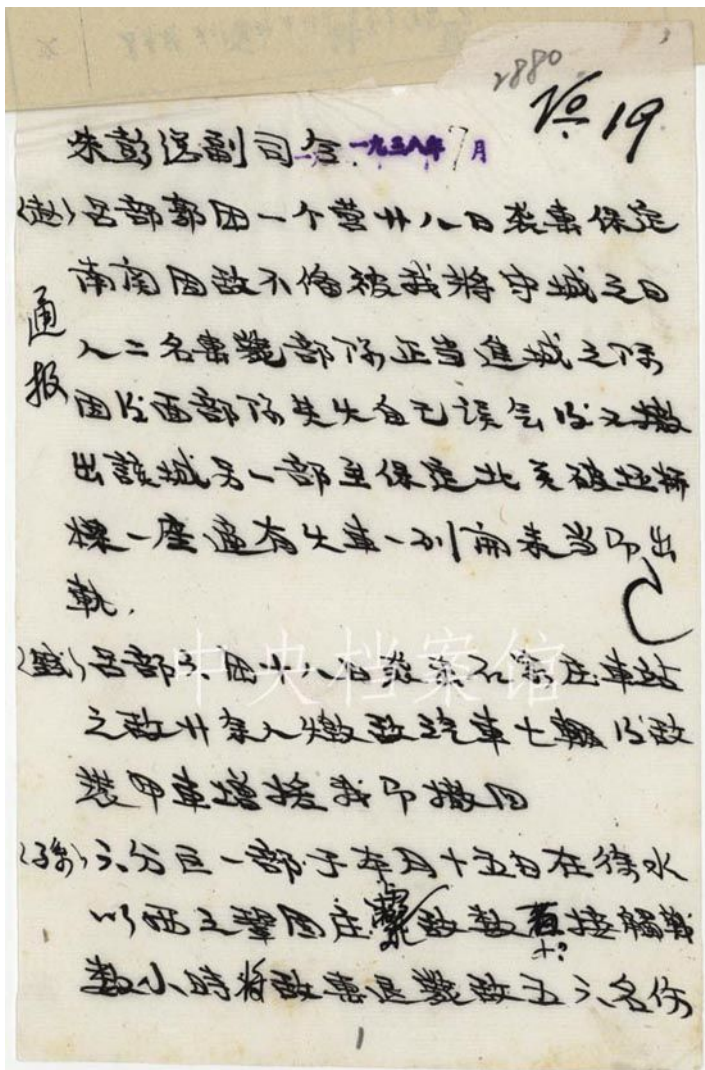 2880
No 19
朱彭总副司令 一九三八年7月
(赵)吕部郭团一个营廿八日袭击保定
南关因敌不备被我将守城之日
人二名击毙部队正当进城之际
因后面部队失火自己误会后又撤
出该城另一部至保定北关破坏桥
梁一座适有火车一列开来当即出
轨.
通报
吕部六团廿八日袭石家庄车站
之敌廿余人毁敌汽车七辆后敌
装甲车增援我即撤回
六分区一部于本月十五日在徐水
以西之 庄 敌数百接触战
十?
数小时将敌击退毙敌五六名伤
1
中央档案馆